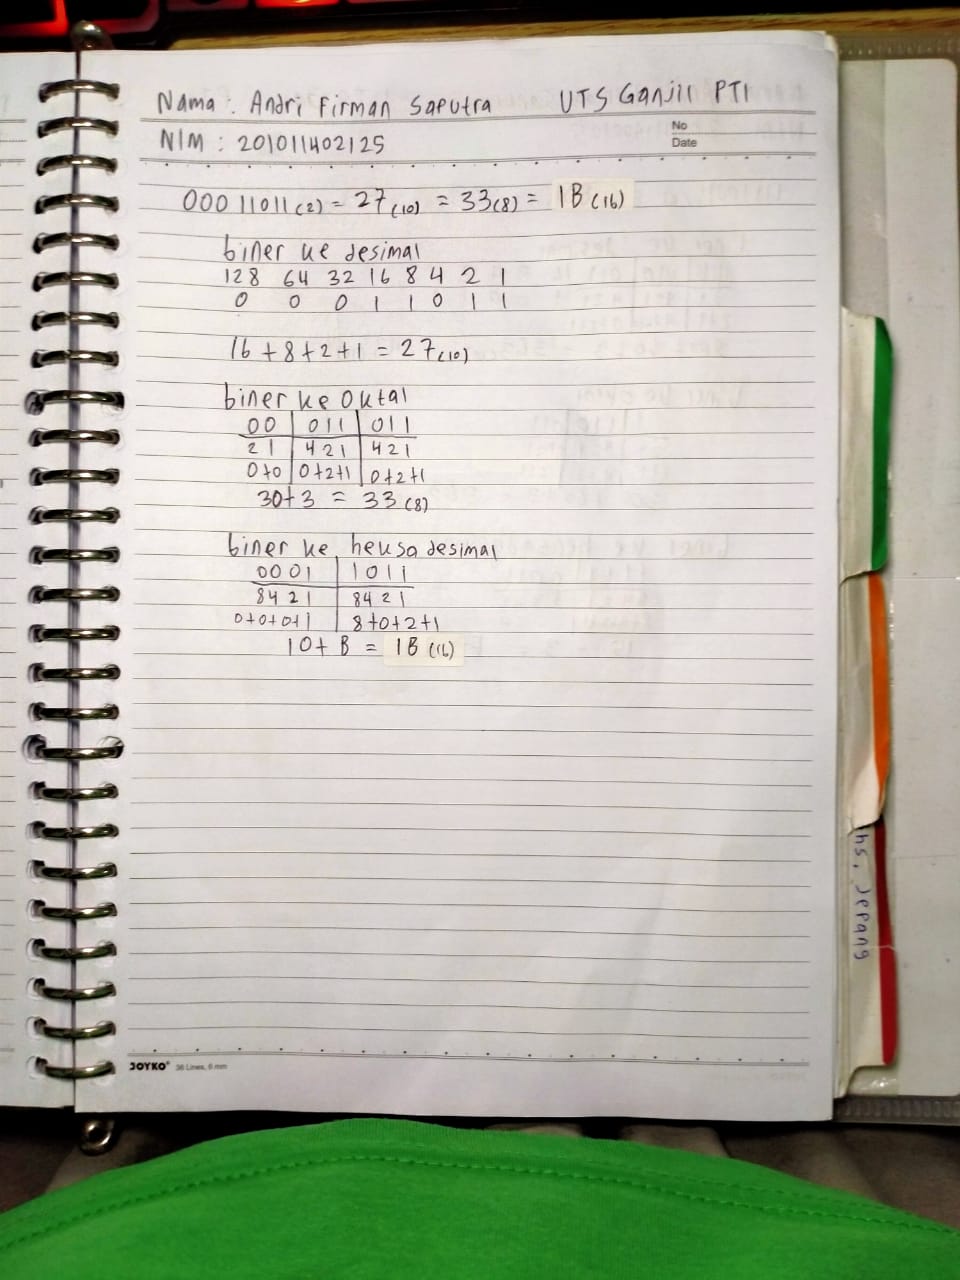 Nama : Andri Firman Saputra UTS Ganjil PTI
NIM : 201011402125
No
Date
000 11011 (2) = 27 (10) = 33 (8) = 1B (16)
biner ke desimal
128 64 32 16 8 4 2 1
0 0 0 1 1 0 1 1
16 + 8 + 2 + 1 = 27 (10)
biner ke oktal
00 | 011 | 011
21 | 421 | 421
0+0 | 0+2+1 | 0+2+1
30+3 = 33 (8)
biner ke heksa desimal
0001 | 1011
8421 | 8421
0+0+0+1 | 8+0+2+1
10+ B = 1B (16)
JOYKO® 36 Lines, 6 mm
hs, Jepang